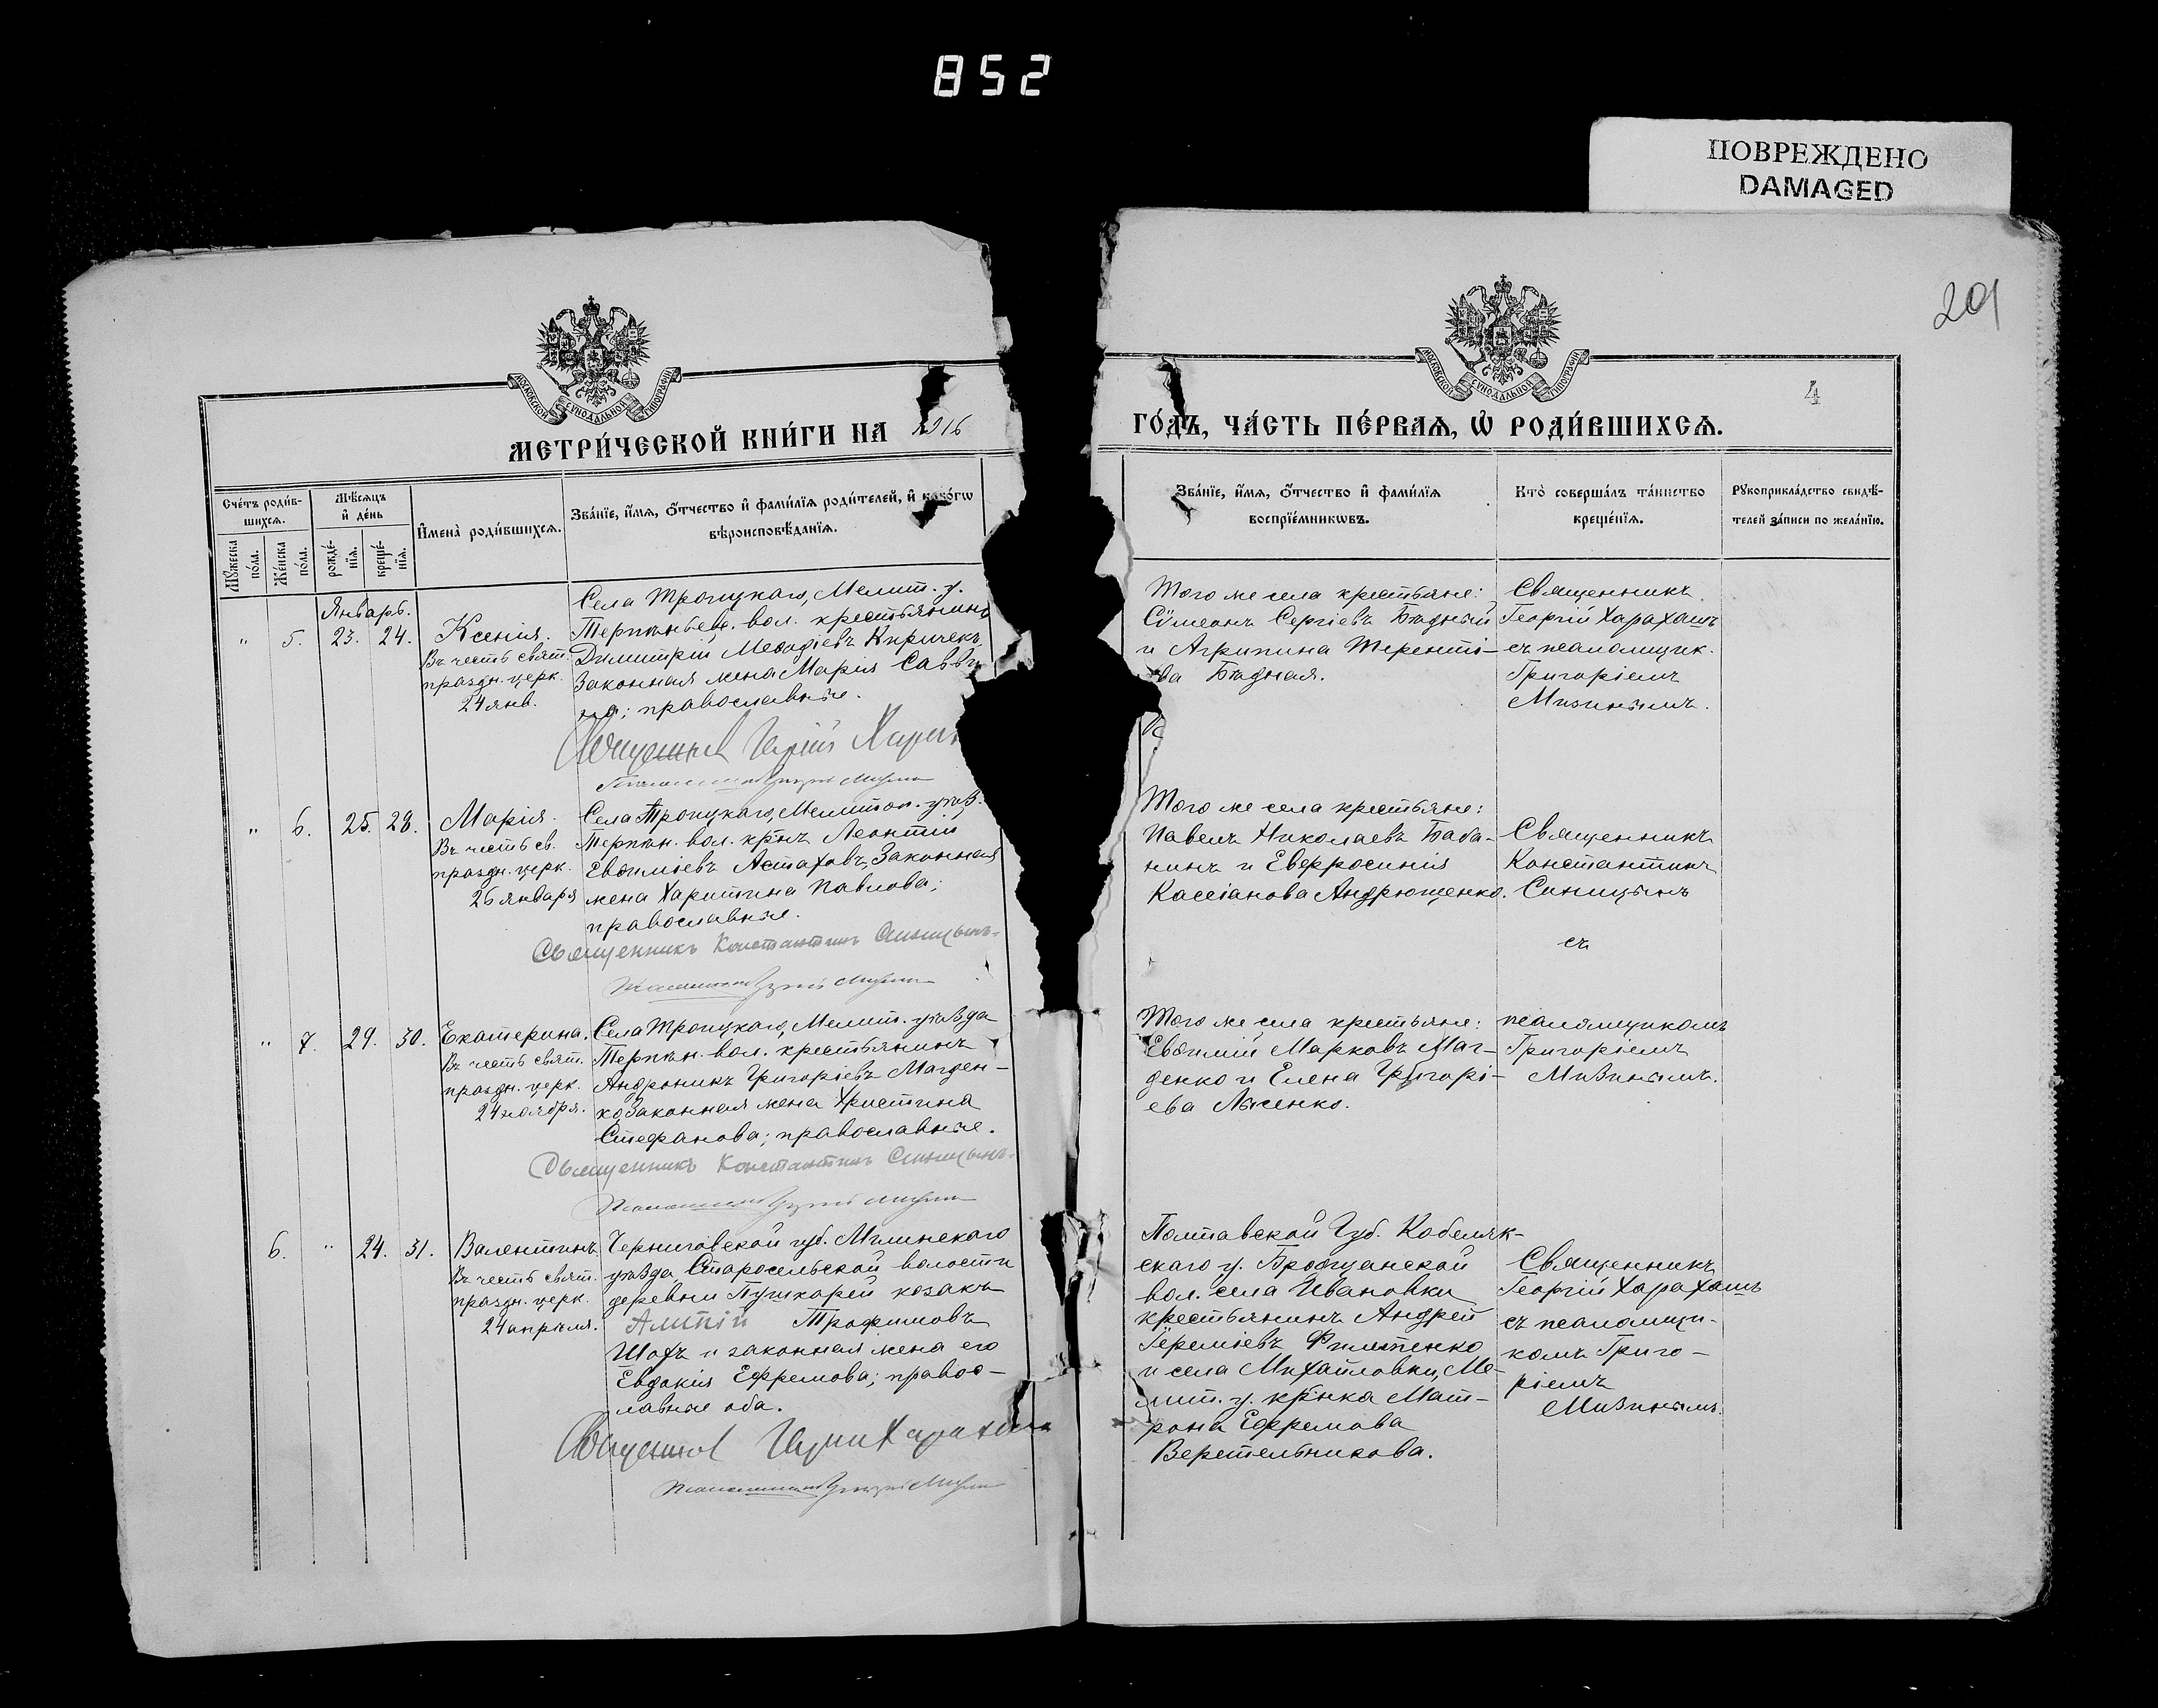 852
ПОВРЕЖДЕНО
DAMAGED
201
4
МОСКОВСКОЙ СѴНОДАЛЬНОЙ ТИПОГРАФІИ
МОСКОВСКОЙ СѴНОДАЛЬНОЙ ТИПОГРАФІИ
МЕТРИ́ЧЕСКОЙ КНИ́ГИ НА 1916
ГО́ДЪ, ЧА́СТЬ ПЕ́РВАѦ, Ѡ҆ РОДИ́ВШИХСѦ.
Сче́тъ роди́в-
шихсѧ.
Мѣ́сѧцъ
и҆ де́нь
И҆мена̀ роди́вшихсѧ.
Зва́нїе, и҆́мѧ, ѻ҆́тчество и҆ фами́лїѧ роди́телей, и҆ како́гѡ
вѣроисповѣ́данїѧ.
Мꙋ́жеска
по́ла.
Же́нска
по́ла.
рожде́-
нїѧ.
креще́-
нїѧ.
Зва́нїе, и҆́мѧ, ѻ҆́тчество и҆ фами́лїѧ
воспрїе́мникѡвъ.
Кто̀ соверша́лъ та́инство
креще́нїѧ.
Рꙋкоприкла́дство свидѣ́-
телей за́писи по жела́нїю.
Январь.
" 5. 23. 24.
Ксенія.
Въ честь свят.
праздн. церк.
24 янв.
Села Троицкаго, Мелит. у.
Терпѣньев. вол. крестьянинъ
Димитрій Меѳодіевъ Киричекъ
Законная жена Марія Савви
на; православные.
Священник Георгій Харах
Псаломщикъ Григорій Мизинъ
Того же села крестьяне:
Сѵмеонъ Сергіевъ Бѣдный
и Агрипина Терентіе-
ва Бѣдная.
Священникъ
Георгій Харахашъ
съ псаломщик.
Григоріемъ
Мизинымъ.
" 6. 25. 28.
Марія.
Въ честь св.
праздн. церк.
26 января
Села Троицкаго, Мелитоп. уѣз.
Терпѣн. вол. кр-нъ Леонтій
Евѳиміевъ Астаховъ, Законная
жена Харитина Павлова;
православные.
Священникъ Константинъ Синицынъ
Псаломщикъ Григорій Мизинъ
Того же села крестьяне:
Павелъ Николаевъ Баба-
нинъ и Евфросинія
Кассіанова Андрющенко.
Священникъ
Константинъ
Синицынъ
съ
" 7. 29. 30.
Екатерина.
Въ честь свят.
праздн. церк.
24 ноября.
Села Троицкаго, Мелит. уѣзда
Терпѣн. вол. крестьянинъ
Андроникъ Григоріевъ Магден-
ко, Законная жена Христина
Стефанова; православные.
Священникъ Константинъ Синицынъ
Псаломщикъ Григорій Мизинъ
Того же села крестьяне:
Евѳимій Марковъ Маг-
денко и Елена Григорі-
ева Лысенко.
псаломщикомъ
Григоріемъ
Мизинымъ.
6. " 24. 31.
Валентинъ.
Въ честь свят.
праздн. церк.
24 апрѣля.
Черниговской губ. Мглинскаго
уѣзда, Старосельской волости
деревни Пушкарей козакъ
Алипій Трофимовъ
Шохъ и законная жена его
Евдокія Ефремова; правос-
лавные оба.
Священник Георгій Харахаш
Псаломщикъ Григорій Мизинъ
Полтавской Губ. Кобеляк-
скаго у. Бродщанской
вол. села Ивановки
крестьянинъ Андрей
Іереміевъ Филипенко
и села Михайловки, Ме-
лит. у. кр-нка Мат-
рона Ефремова
Веретельникова.
Священникъ
Георгій Харахашъ
съ псаломщи-
комъ Григо-
ріемъ
Мизинымъ.